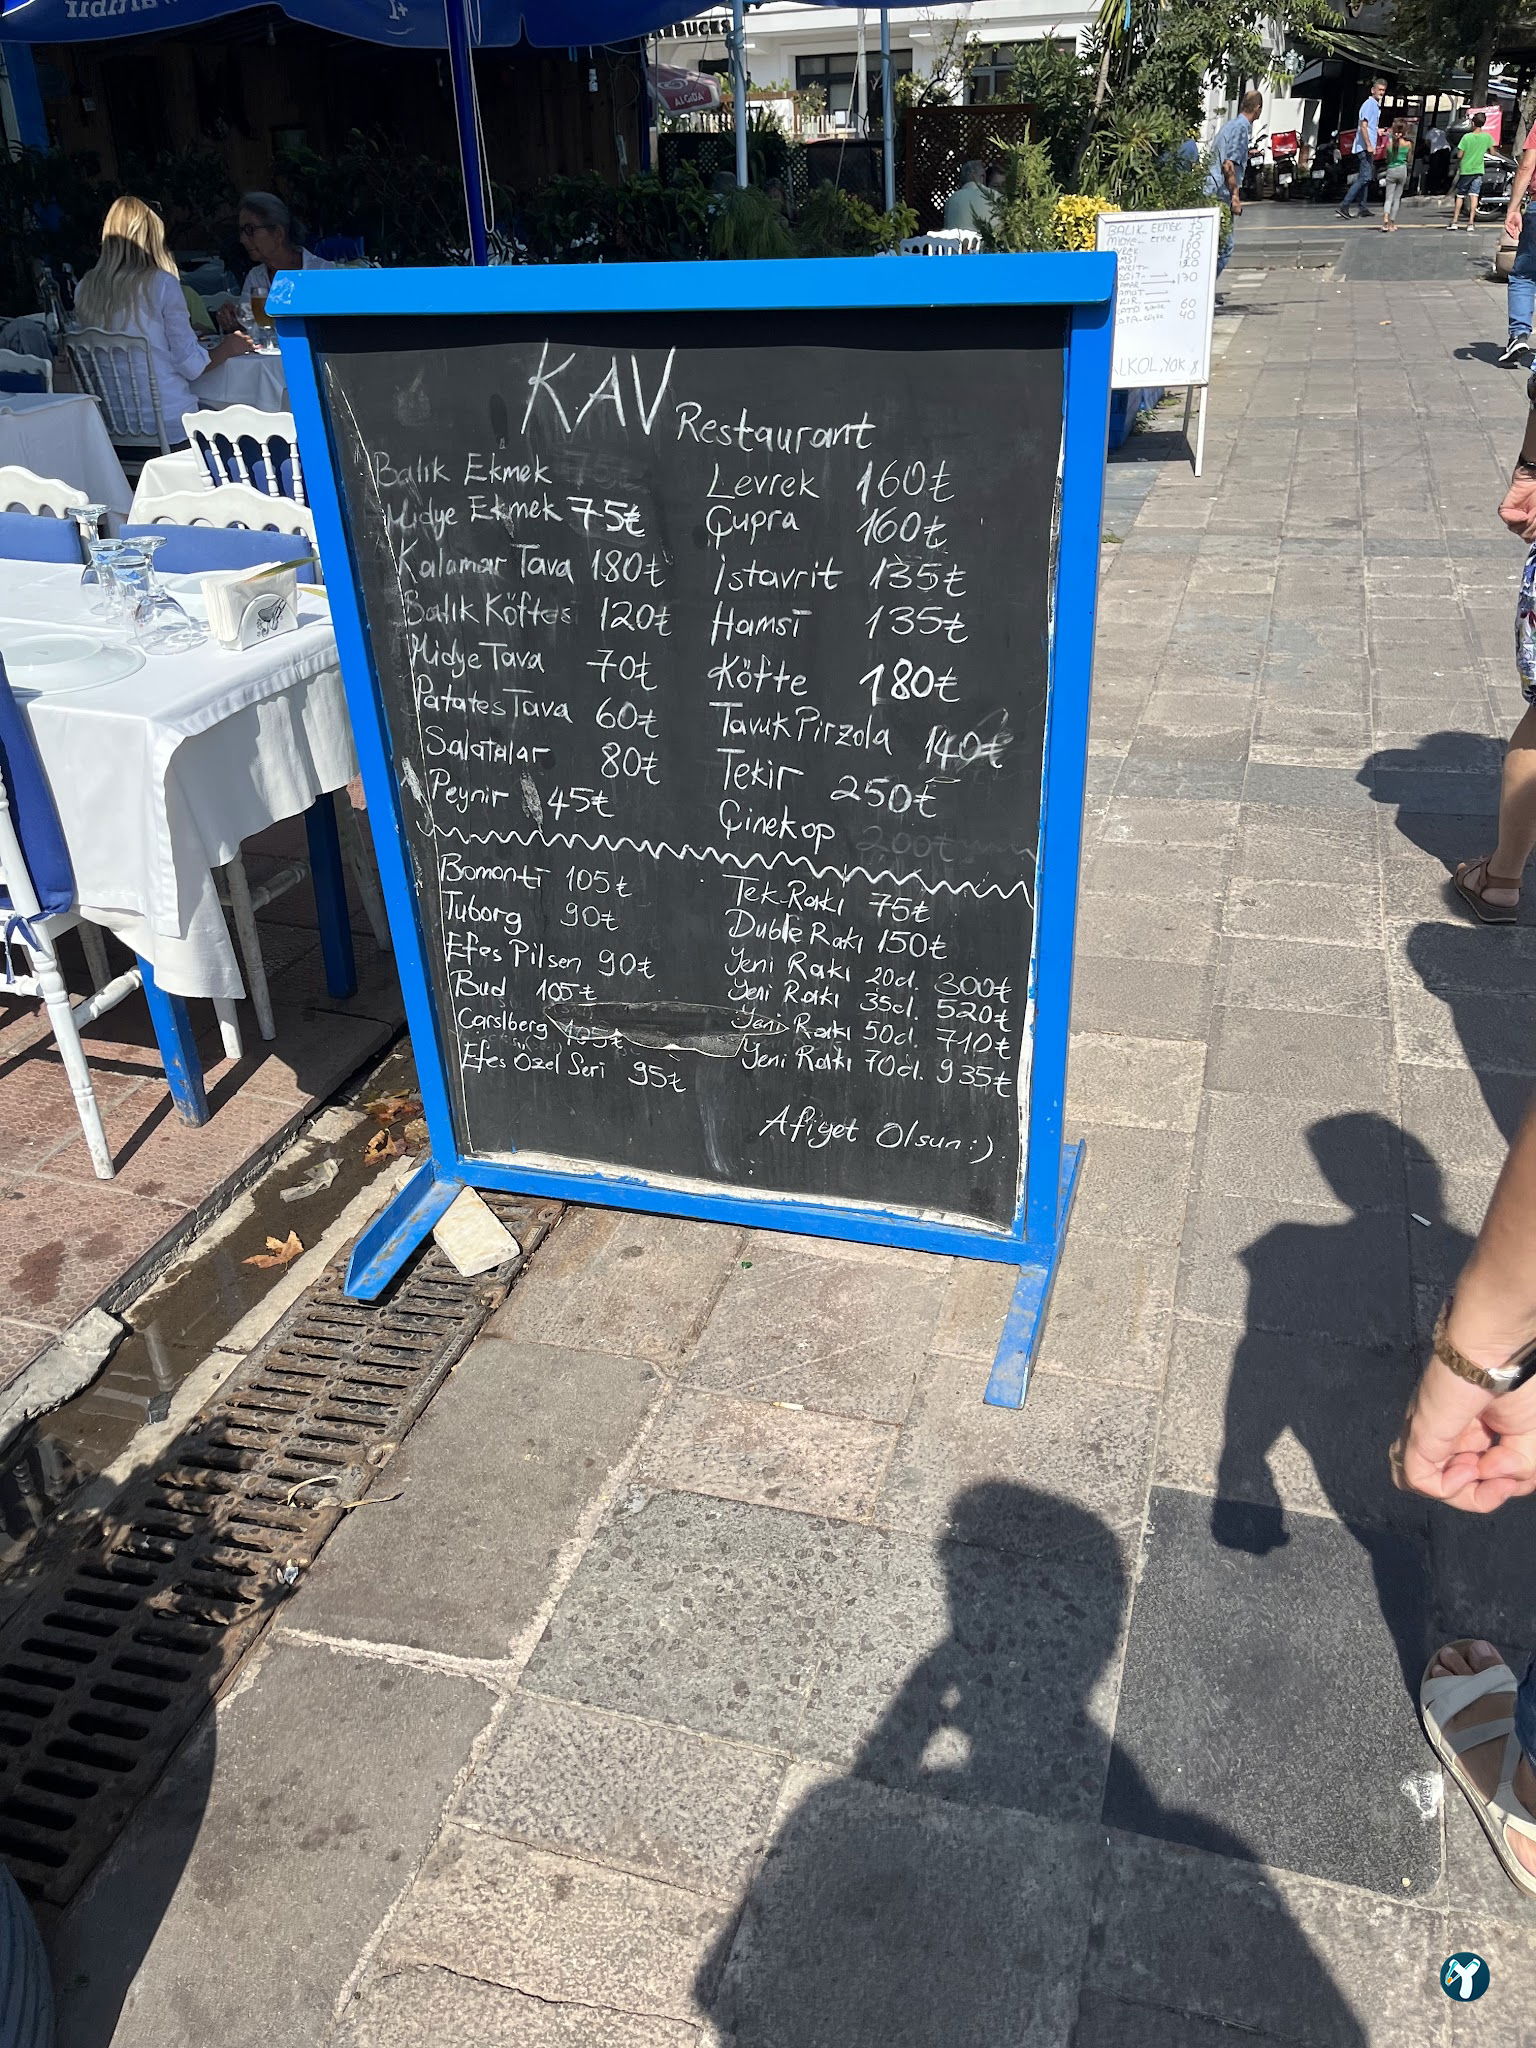 KAV Restaurant
Balık Ekmek 75₺
Midye Ekmek 75₺
Kalamar Tava 180₺
Balık Köftesi 120₺
Midye Tava 70₺
Patates Tava 60₺
Salatalar 80₺
Peynir 45₺
Levrek 160₺
Çupra 160₺
İstavrit 135₺
Hamsi 135₺
Köfte 180₺
Tavuk Pirzola 140₺
Tekir 250₺
Çinekop 200₺
Bomonti 105₺
Tuborg 90₺
Efes Pilsen 90₺
Bud 105₺
Carslberg 105₺
Efes Özel Seri 95₺
Tek Rakı 75₺
Duble Rakı 150₺
Yeni Rakı 20cl. 300₺
Yeni Rakı 35cl. 520₺
Yeni Rakı 50cl. 710₺
Yeni Rakı 70cl. 935₺
Afiyet Olsun :)
BALIK EKMEK
MİDYE EKMEK
130
60
40
ALGIDA